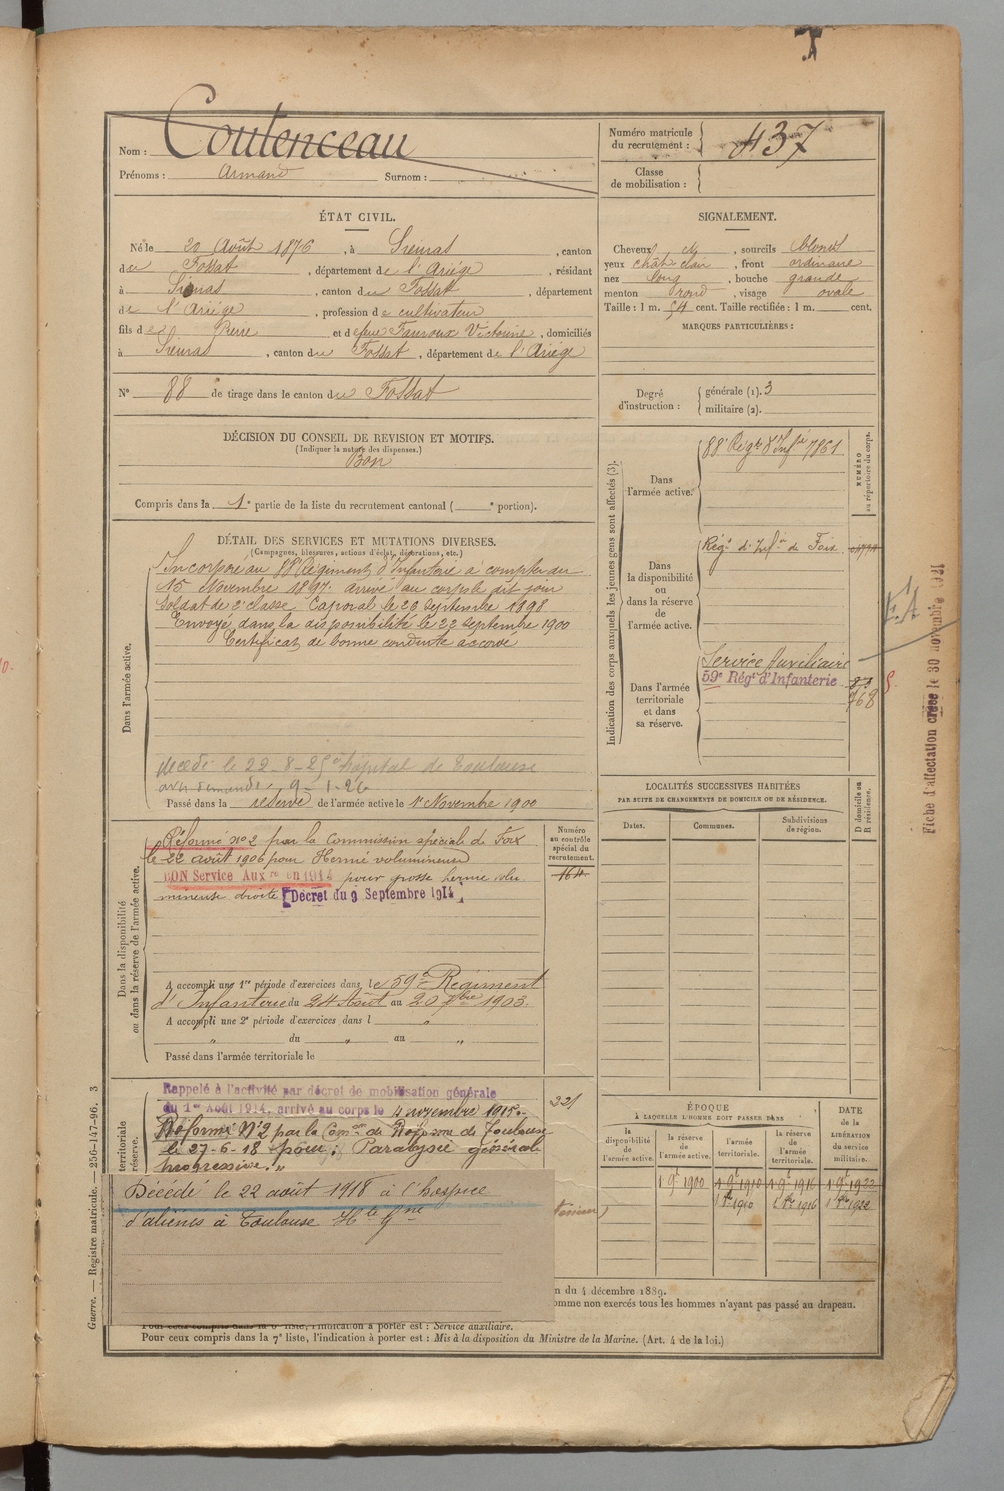 Nom : Coutenceau
Prénoms : Armand Surnom :
Numéro matricule du recrutement : 437
Classe de mobilisation :
ÉTAT CIVIL.
Né le 20 Août 1876, à Sieuras, canton
du Fossat, département de l'Ariége, résidant
à Sieuras, canton du Fossat, département
de l'Ariége, profession de cultivateur
fils de Pierre et de Fauroux Victorine, domiciliés
à Sieuras, canton du Fossat, département de l'Ariége
N° 88 de tirage dans le canton du Fossat
SIGNALEMENT.
Cheveux ch, sourcils blonds
yeux chât clair, front ordinaire
nez long, bouche grande
menton rond, visage ovale
Taille : 1 m. 54 cent. Taille rectifiée : 1 m. cent.
MARQUES PARTICULIÈRES :
Degré d'instruction : générale (1). 3
militaire (2).
DÉCISION DU CONSEIL DE REVISION ET MOTIFS.
(Indiquer la nature des dispenses.)
Bon
Compris dans la 1e partie de la liste du recrutement cantonal ( e portion).
DÉTAIL DES SERVICES ET MUTATIONS DIVERSES.
(Campagnes, blessures, actions d'éclat, décorations, etc.)
Dans l'armée active.
Incorporé au 88e Régiment d'Infanterie à compter du
15 Novembre 1897. arrivé au corps le dit jour
Soldat de 2e classe. Caporal le 20 Septembre 1898
Envoyé dans la disponibilité le 22 septembre 1900
Certificat de bonne conduite accordé
décédé le 22-8-25 hôpital de Toulouse
avis demandé 9-1-26
Passé dans la réserve de l'armée active le 1er Novembre 1900
Indication des corps auxquels les jeunes gens sont affectés (3).
NUMÉRO au répertoire du corps.
Dans l'armée active.
88e Régt d'Infie 7861
Dans la disponibilité ou dans la réserve de l'armée active.
Régt d'Infie de Foix
Dans l'armée territoriale et dans sa réserve.
Service Auxiliaire
59e Régt d'Infanterie
768
Fiche d'affectation créée le 30 novembre 1921
LOCALITÉS SUCCESSIVES HABITÉES
PAR SUITE DE CHANGEMENTS DE DOMICILE OU DE RÉSIDENCE.
Dates. Communes. Subdivisions de région. D domicile ou R résidence.
Dans la disponibilité ou dans la réserve de l'armée active.
Numéro au contrôle spécial du recrutement.
164
Réformé n° 2 par la Commission spéciale de Foix
le 22 août 1906 pour Hernie volumineuse
BON Service Auxre en 1914 pour grosse hernie volu
mineuse droite Décret du 9 Septembre 1914
A accompli une 1re période d'exercices dans le 59e Régiment
d'Infanterie du 24 Août au 20 7bre 1903.
A accompli une 2e période d'exercices dans l „
„ du „ au „
Passé dans l'armée territoriale le
territoriale
réserve.
Rappelé à l'activité par décret de mobilisation générale
du 1er Août 1914, arrivé au corps le 4 novembre 1915.
Réformé N°2 par la Comon de Réforme de Toulouse
le 27-6-18 pour : Paralysie générale
progressive. „
221
Décédé le 22 août 1918 à l'hospice
d'aliénés à Toulouse Hte Gne
ÉPOQUE
À LAQUELLE L'HOMME DOIT PASSER DANS
la disponibilité de l'armée active. la réserve de l'armée active. l'armée territoriale. la réserve de l'armée territoriale.
DATE de la LIBÉRATION du service militaire.
1 9e 1900 1 9e 1910 1 9e 1916 1 9e 1922
1 8e 1910 1 8e 1916 1 8e 1922
n du 4 décembre 1889.
omme non exercés tous les hommes n'ayant pas passé au drapeau.
Pour ceux compris dans la 6e liste, l'indication à porter est : Service auxiliaire.
Pour ceux compris dans la 7e liste, l'indication à porter est : Mis à la disposition du Ministre de la Marine. (Art. 4 de la loi.)
Guerre. — Registre matricule. — 256-147-96. 3